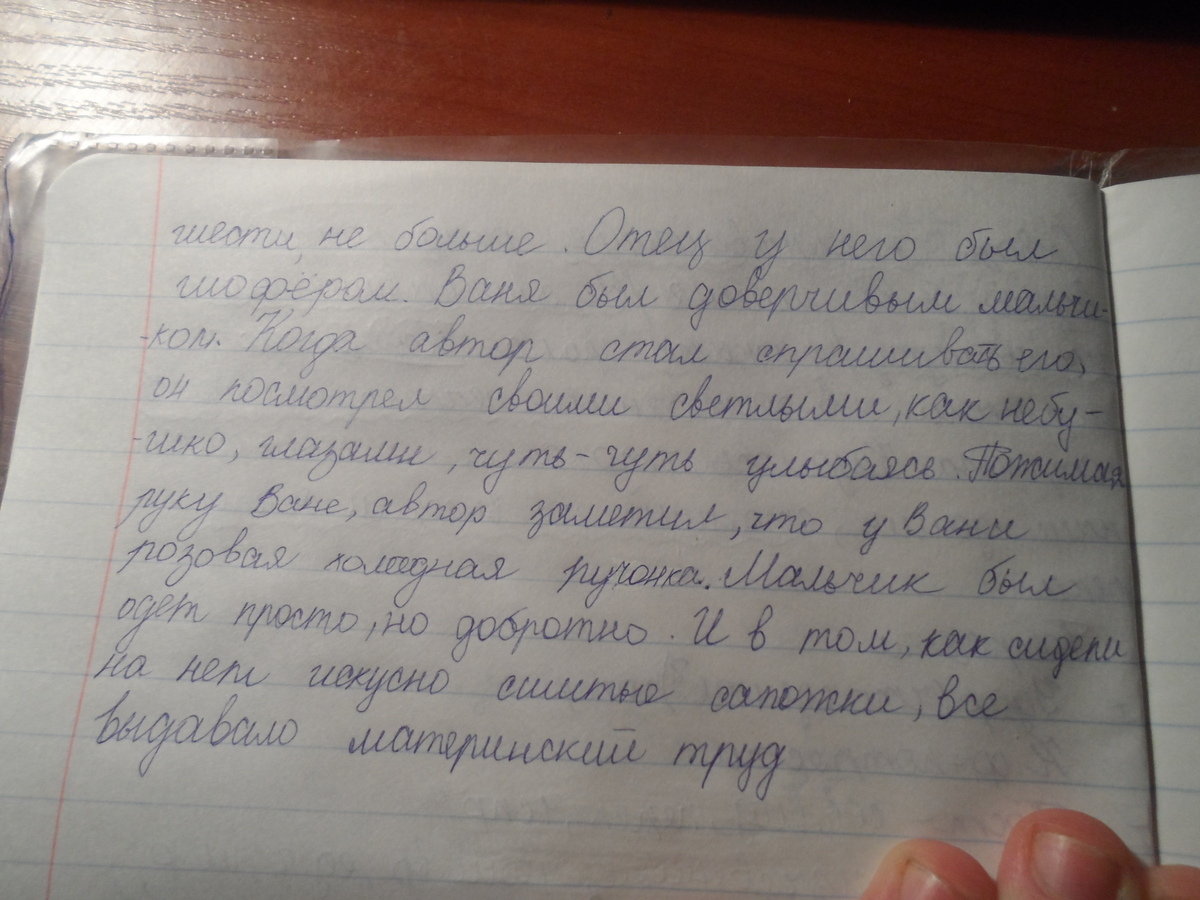 шести, не больше. Отец у него был
шофёром. Ваня был доверчивым мальчи-
-ком. Когда автор стал спрашивать его,
он посмотрел своими светлыми, как небу-
-шко, глазами, чуть-чуть улыбаясь. Пожимая
руку Ване, автор заметил, что у Вани
розовая холодная ручонка. Мальчик был
одет просто, но добротно. И в том, как сидели
на нем искусно сшитые сапожки, все
выдавало материнский труд